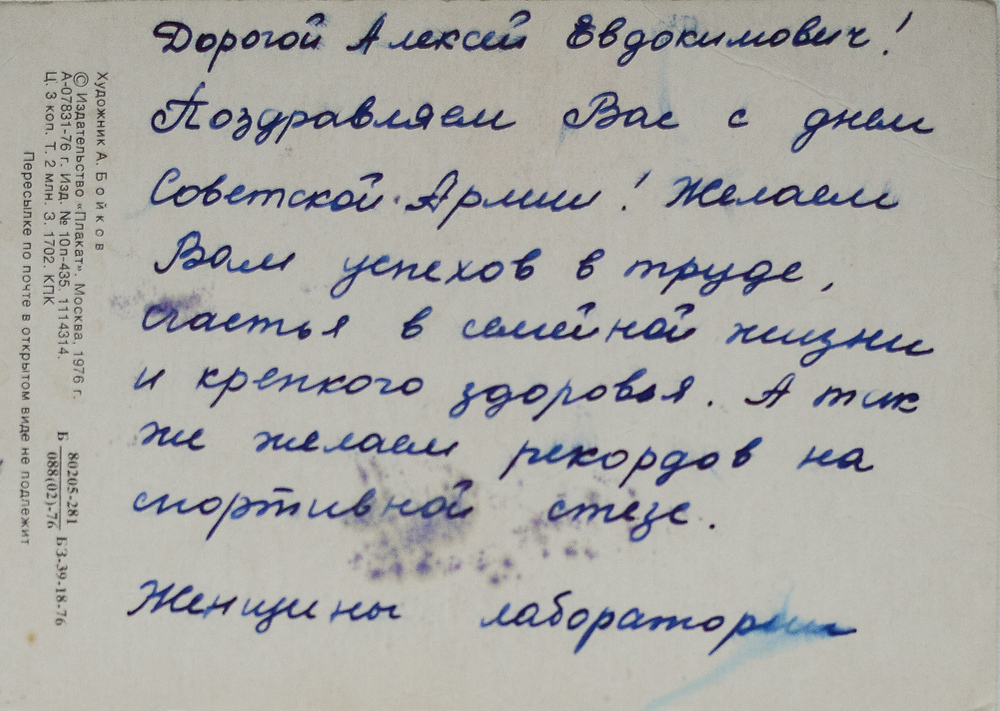 Дорогой Алексей Евдокимович!
Поздравляем Вас с днем
Советской Армии! Желаем
Вам успехов в труде,
счастья в семейной жизни
и крепкого здоровья. А так
же желаем рекордов на
спортивной стезе.
Женщины лаборатории
Художник А. Бойков
© Издательство «Плакат». Москва. 1976 г.
А-07831-76 г. Изд. № 10п-435. 1114314.
Ц. 3 коп. Т. 2 млн. З. 1702. КПК
Пересылке по почте в открытом виде не подлежит
Б 80205-281 БЗ-39-18-76
088(02)-76